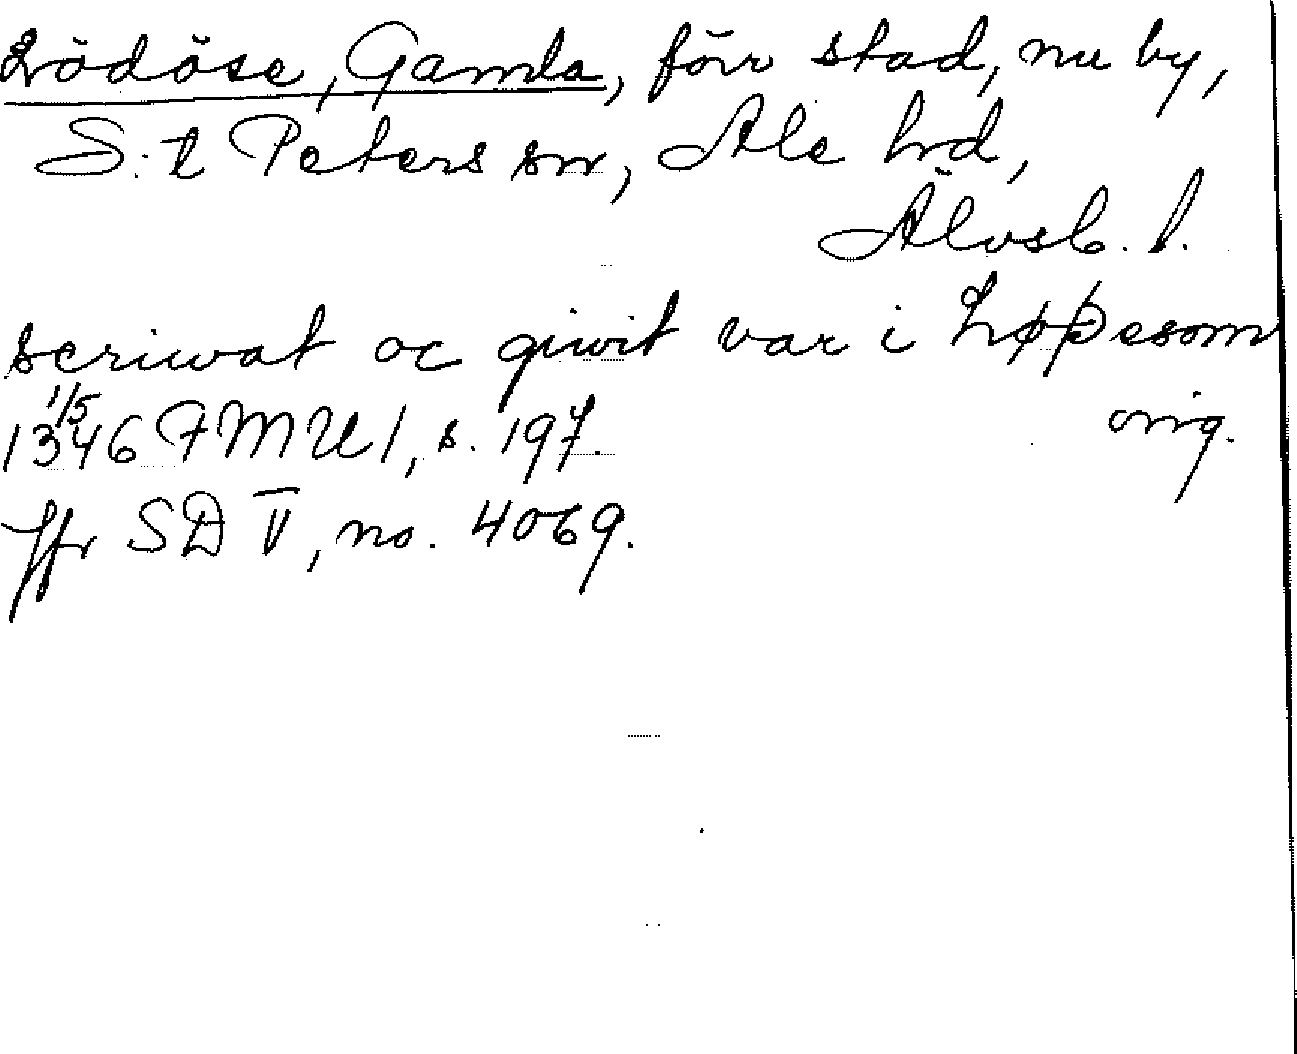 Lödöse, Gamla, förr stad, nu by,
S:t Peters sn, Ale hd,
Älvsb. l.
scriwat oc giwit var i Løþesom
1/5
1346 FMU 1, s. 197. orig.
Jfr SD V, no. 4069.